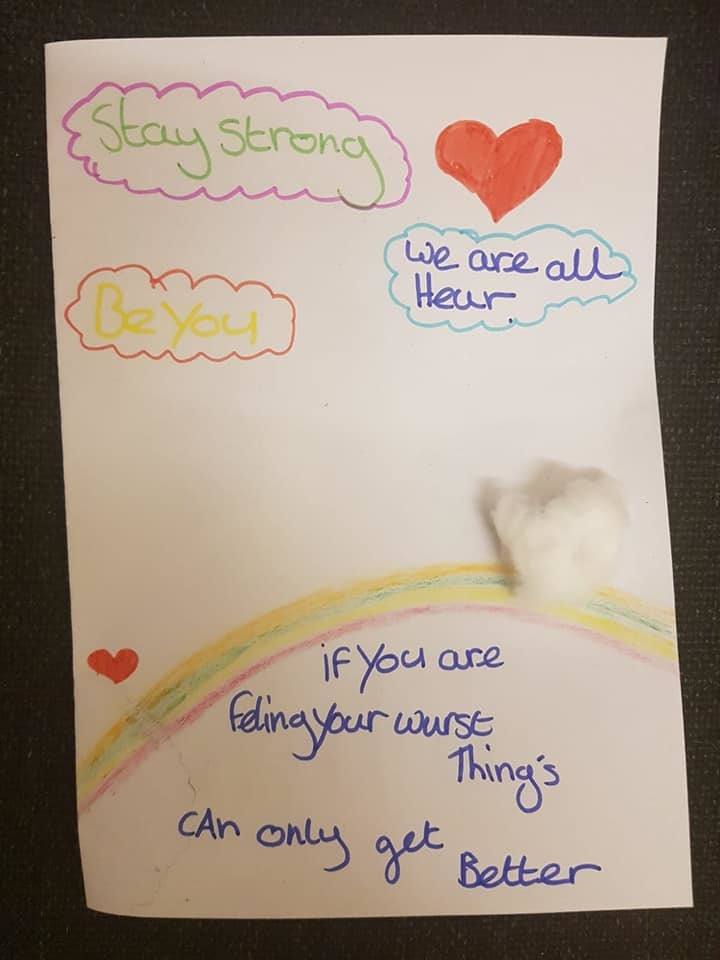 Stay Strong
We are all
Hear.
Be You
if You are
feling Your wurst
Thing's
CAn only get
Better